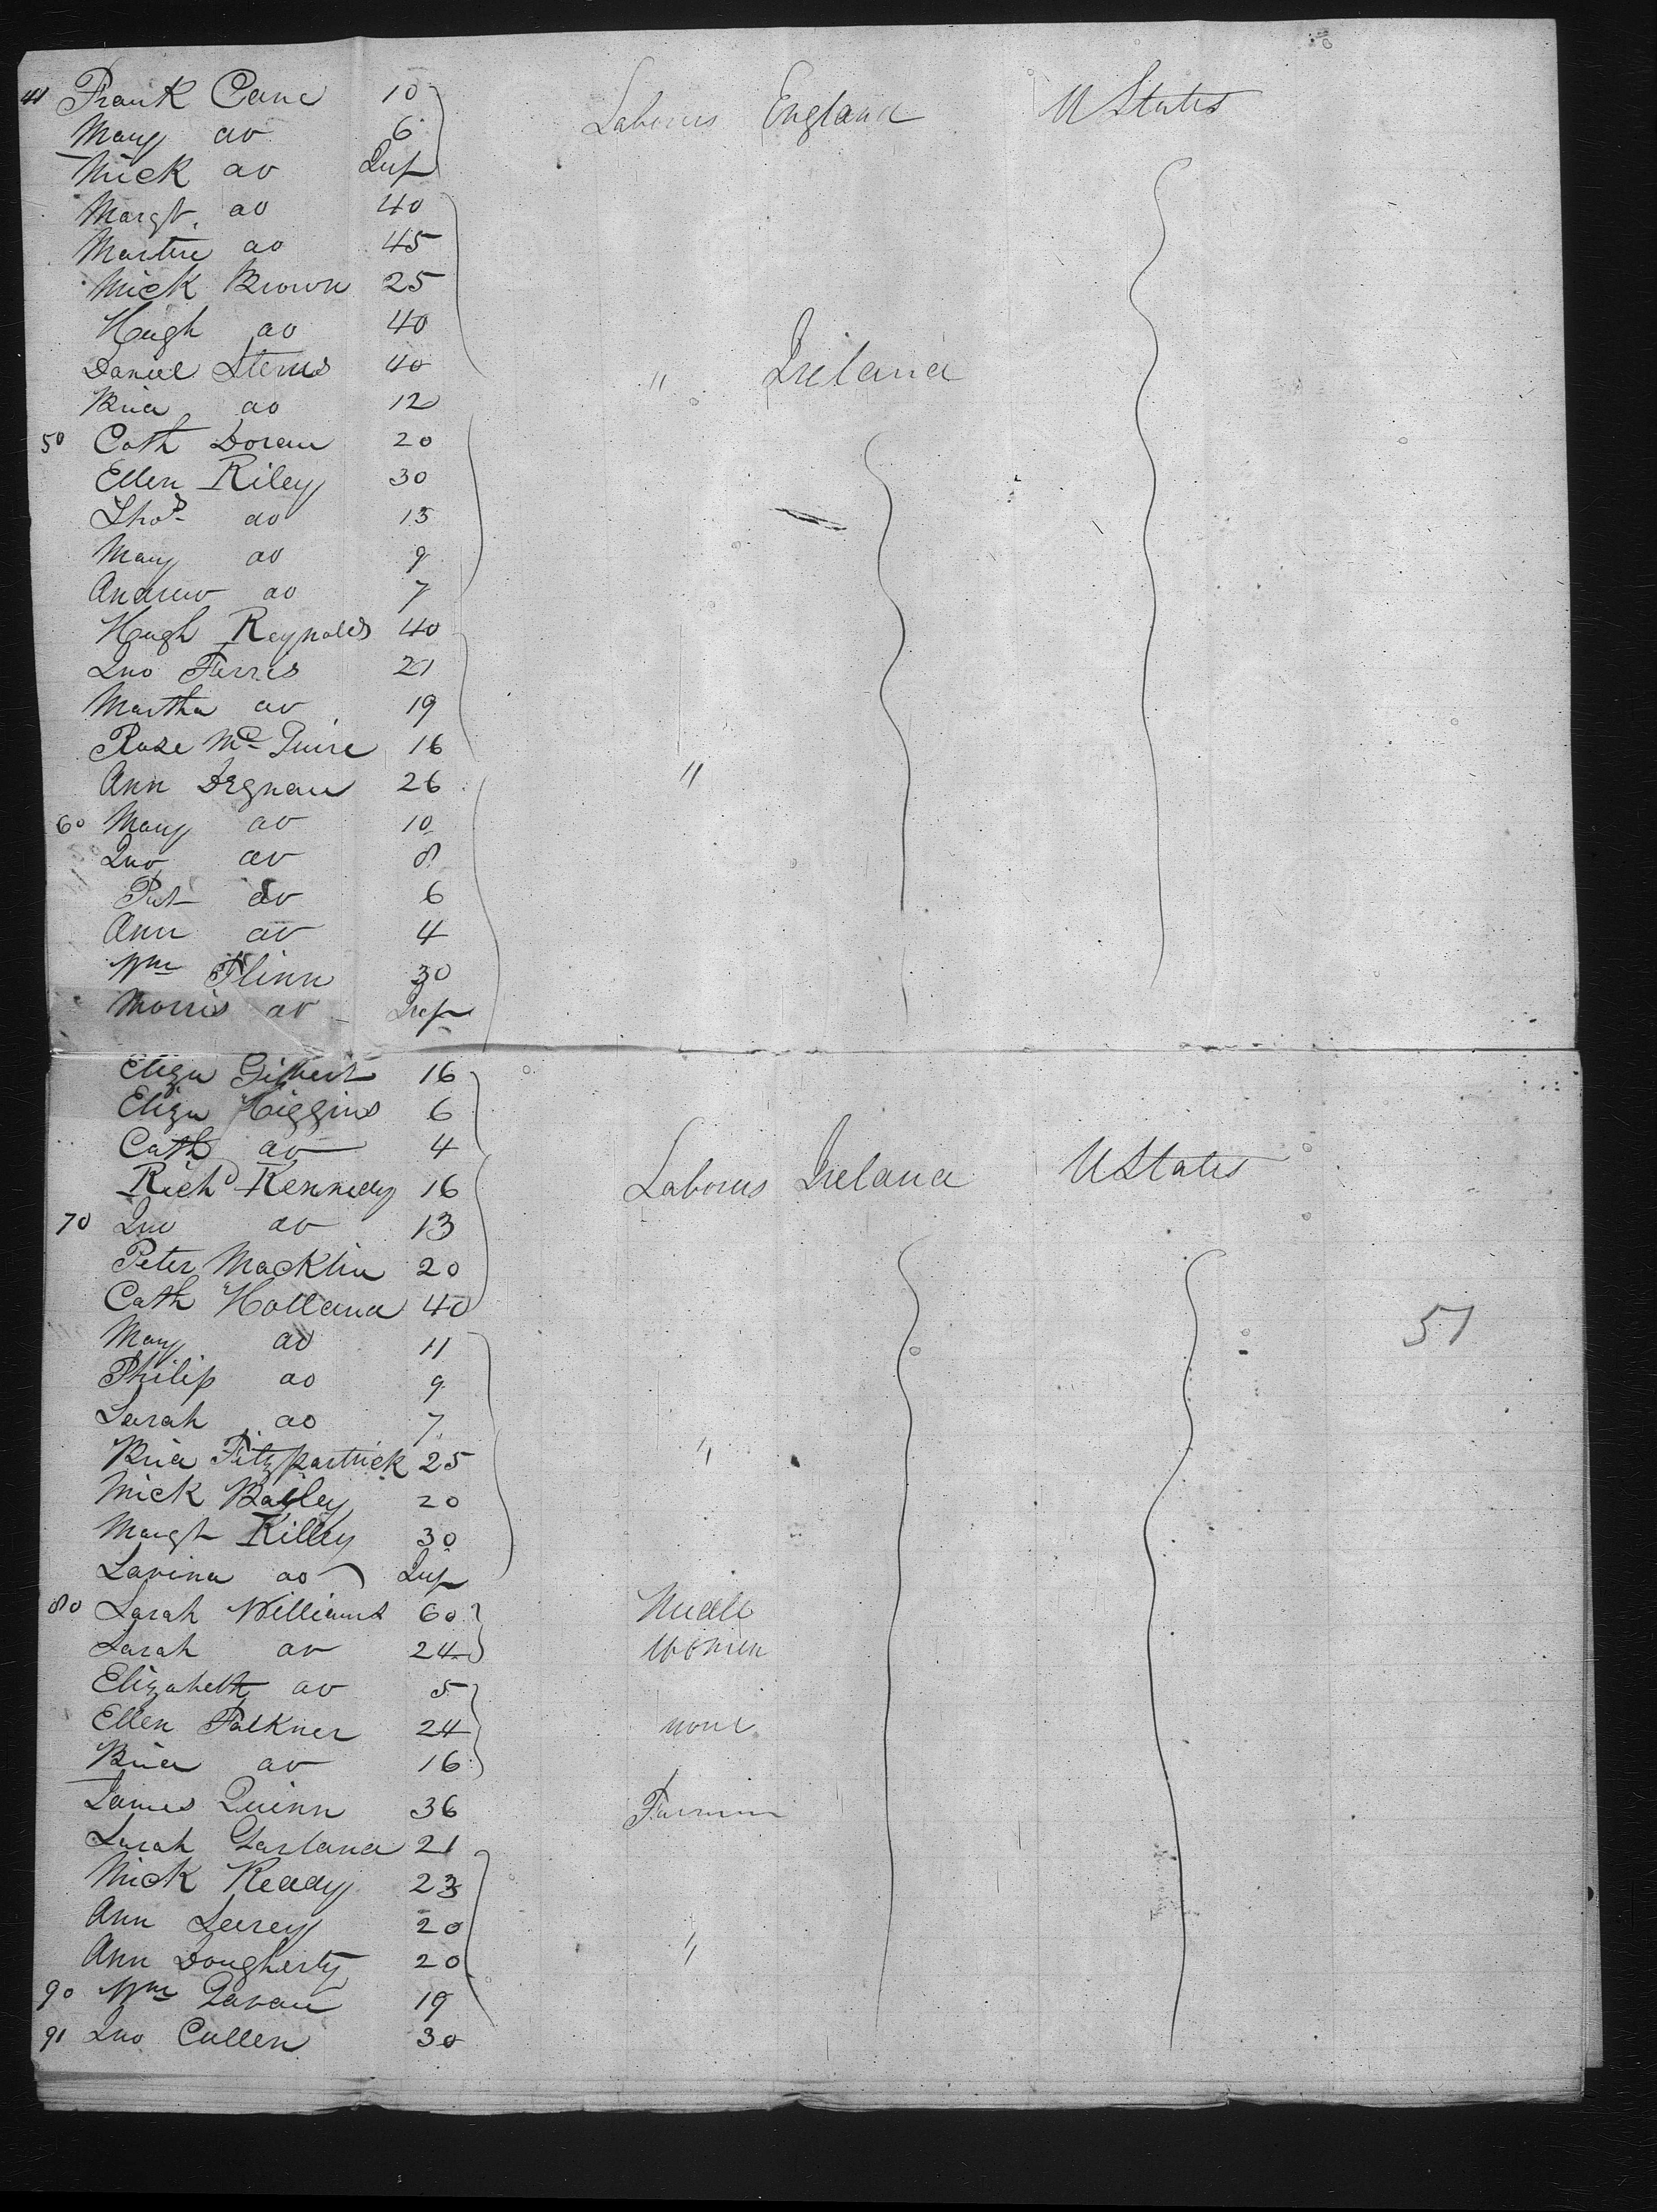 41 Frank Cane 10 Laborers England U States
Mary do 6
Mick do Inf
Margt. do 40
Martin do 45
Mick Brown 25
Hugh do 40
Daniel 40 " Ireland
do 12
50 Cath Doran 20
Ellen Riley 30
Thos do 13
Mary do 9
Andrew do 7
Hugh Reynolds 40
Jno Ferris 21
Martha do 19
Rose Mc Guire 16
Ann Degnan 26 "
60 Mary do 10
Jno do 8
Pat do 6
Ann do 4
Wm Flinn 30
Morris do Inf
Eliza Gilbert 16
Eliza Higgins 6
Cath do 4
Richd Kennedy 16 Laborers Ireland U States
70 Jno do 13
Peter Macklin 20
Cath Holland 40
Mary do 11 51
Philip do 9
Sarah do 7
Fitzpartrick 25 "
Mick Bayley 20
Margt Killey 30
Lavina do Inf
80 Sarah Williams 60 Needle
Sarah do 24 women
Elizabeth do 5
Ellen Falkner 24 none
do 16
James Quinn 36
Sarah Garland 21
Mick Ready 23
Ann 20
Ann Dougherty 20 "
90 Wm Gavan 19
91 Jno Cullen 30